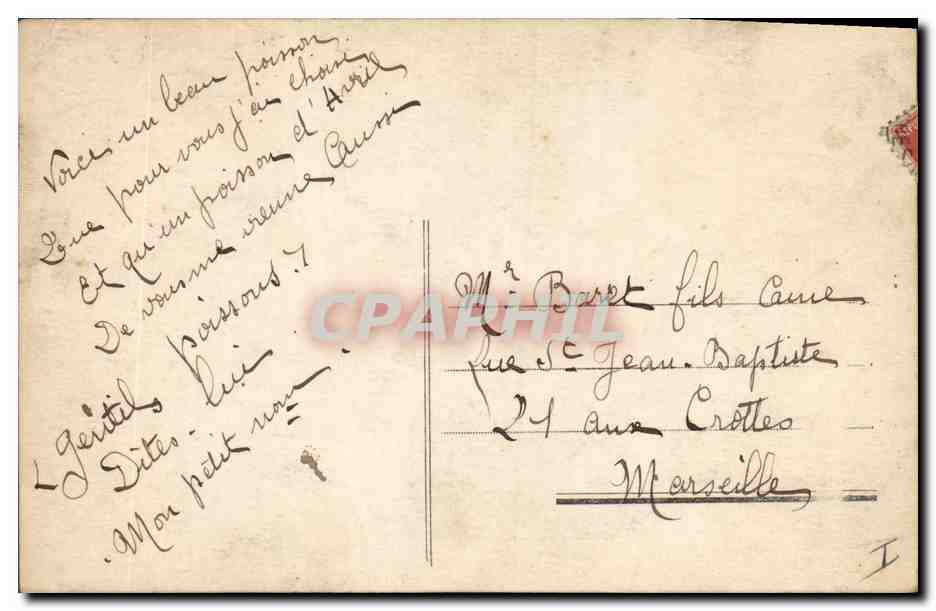 Voici un beau poisson
Que pour vous j'ai choisi
Et qu'un poisson d'Avril
De vous me vienne Aussi
Gentils poissons ?
Dites-lui
Mon petit nom
Mr Baret fils Caine
Rue St Jean-Baptiste
21 aux Crottes
Marseille
I
CPAPHIL